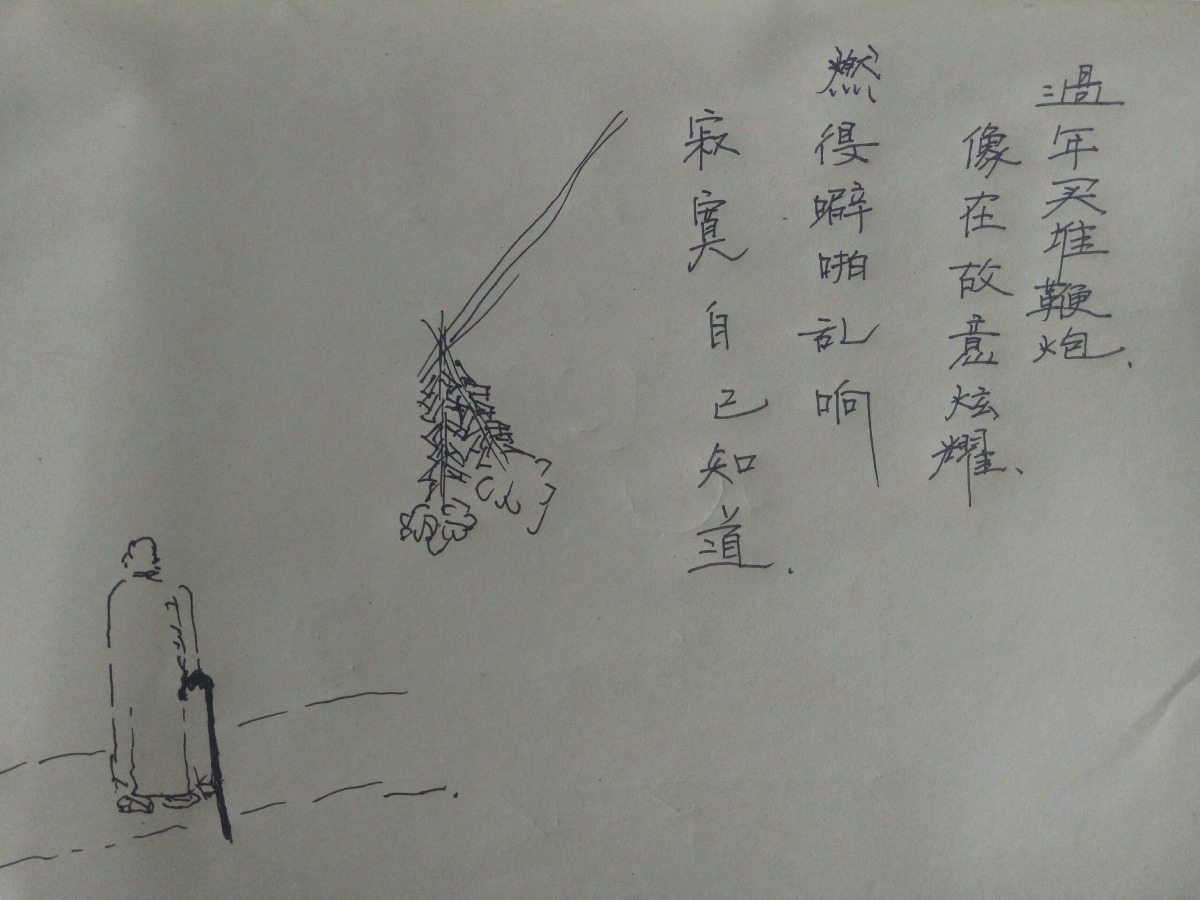 過年买堆鞭炮.
像在故意炫耀、
燃得噼啪乱响
寂寞自己知道.